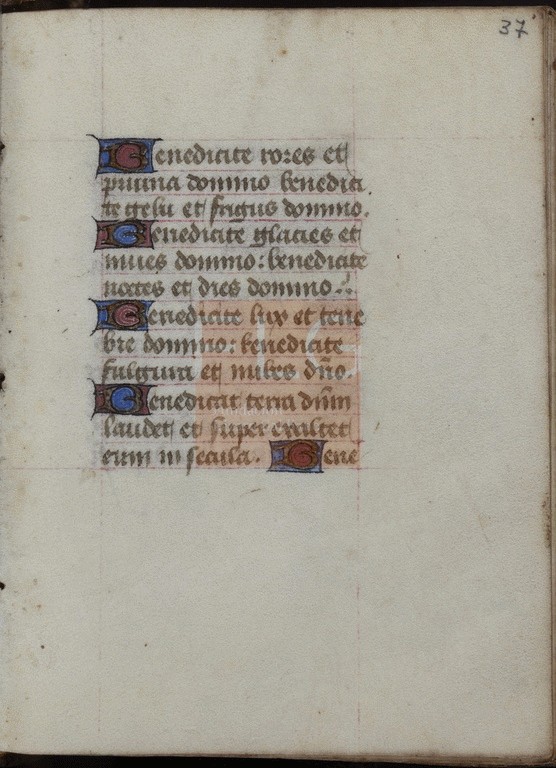 37
Benedicite rores et
pruina domino benedici
te gelu et frigus domino.
Benedicite glacies et
niues domino: benedicite
noctes et dies domino.
Benedicite lux et tene
bre domino: benedicite
fulgura et nubes dño
Benedicat terra dñm
laudet et super exaltet
eum in secula. Bene